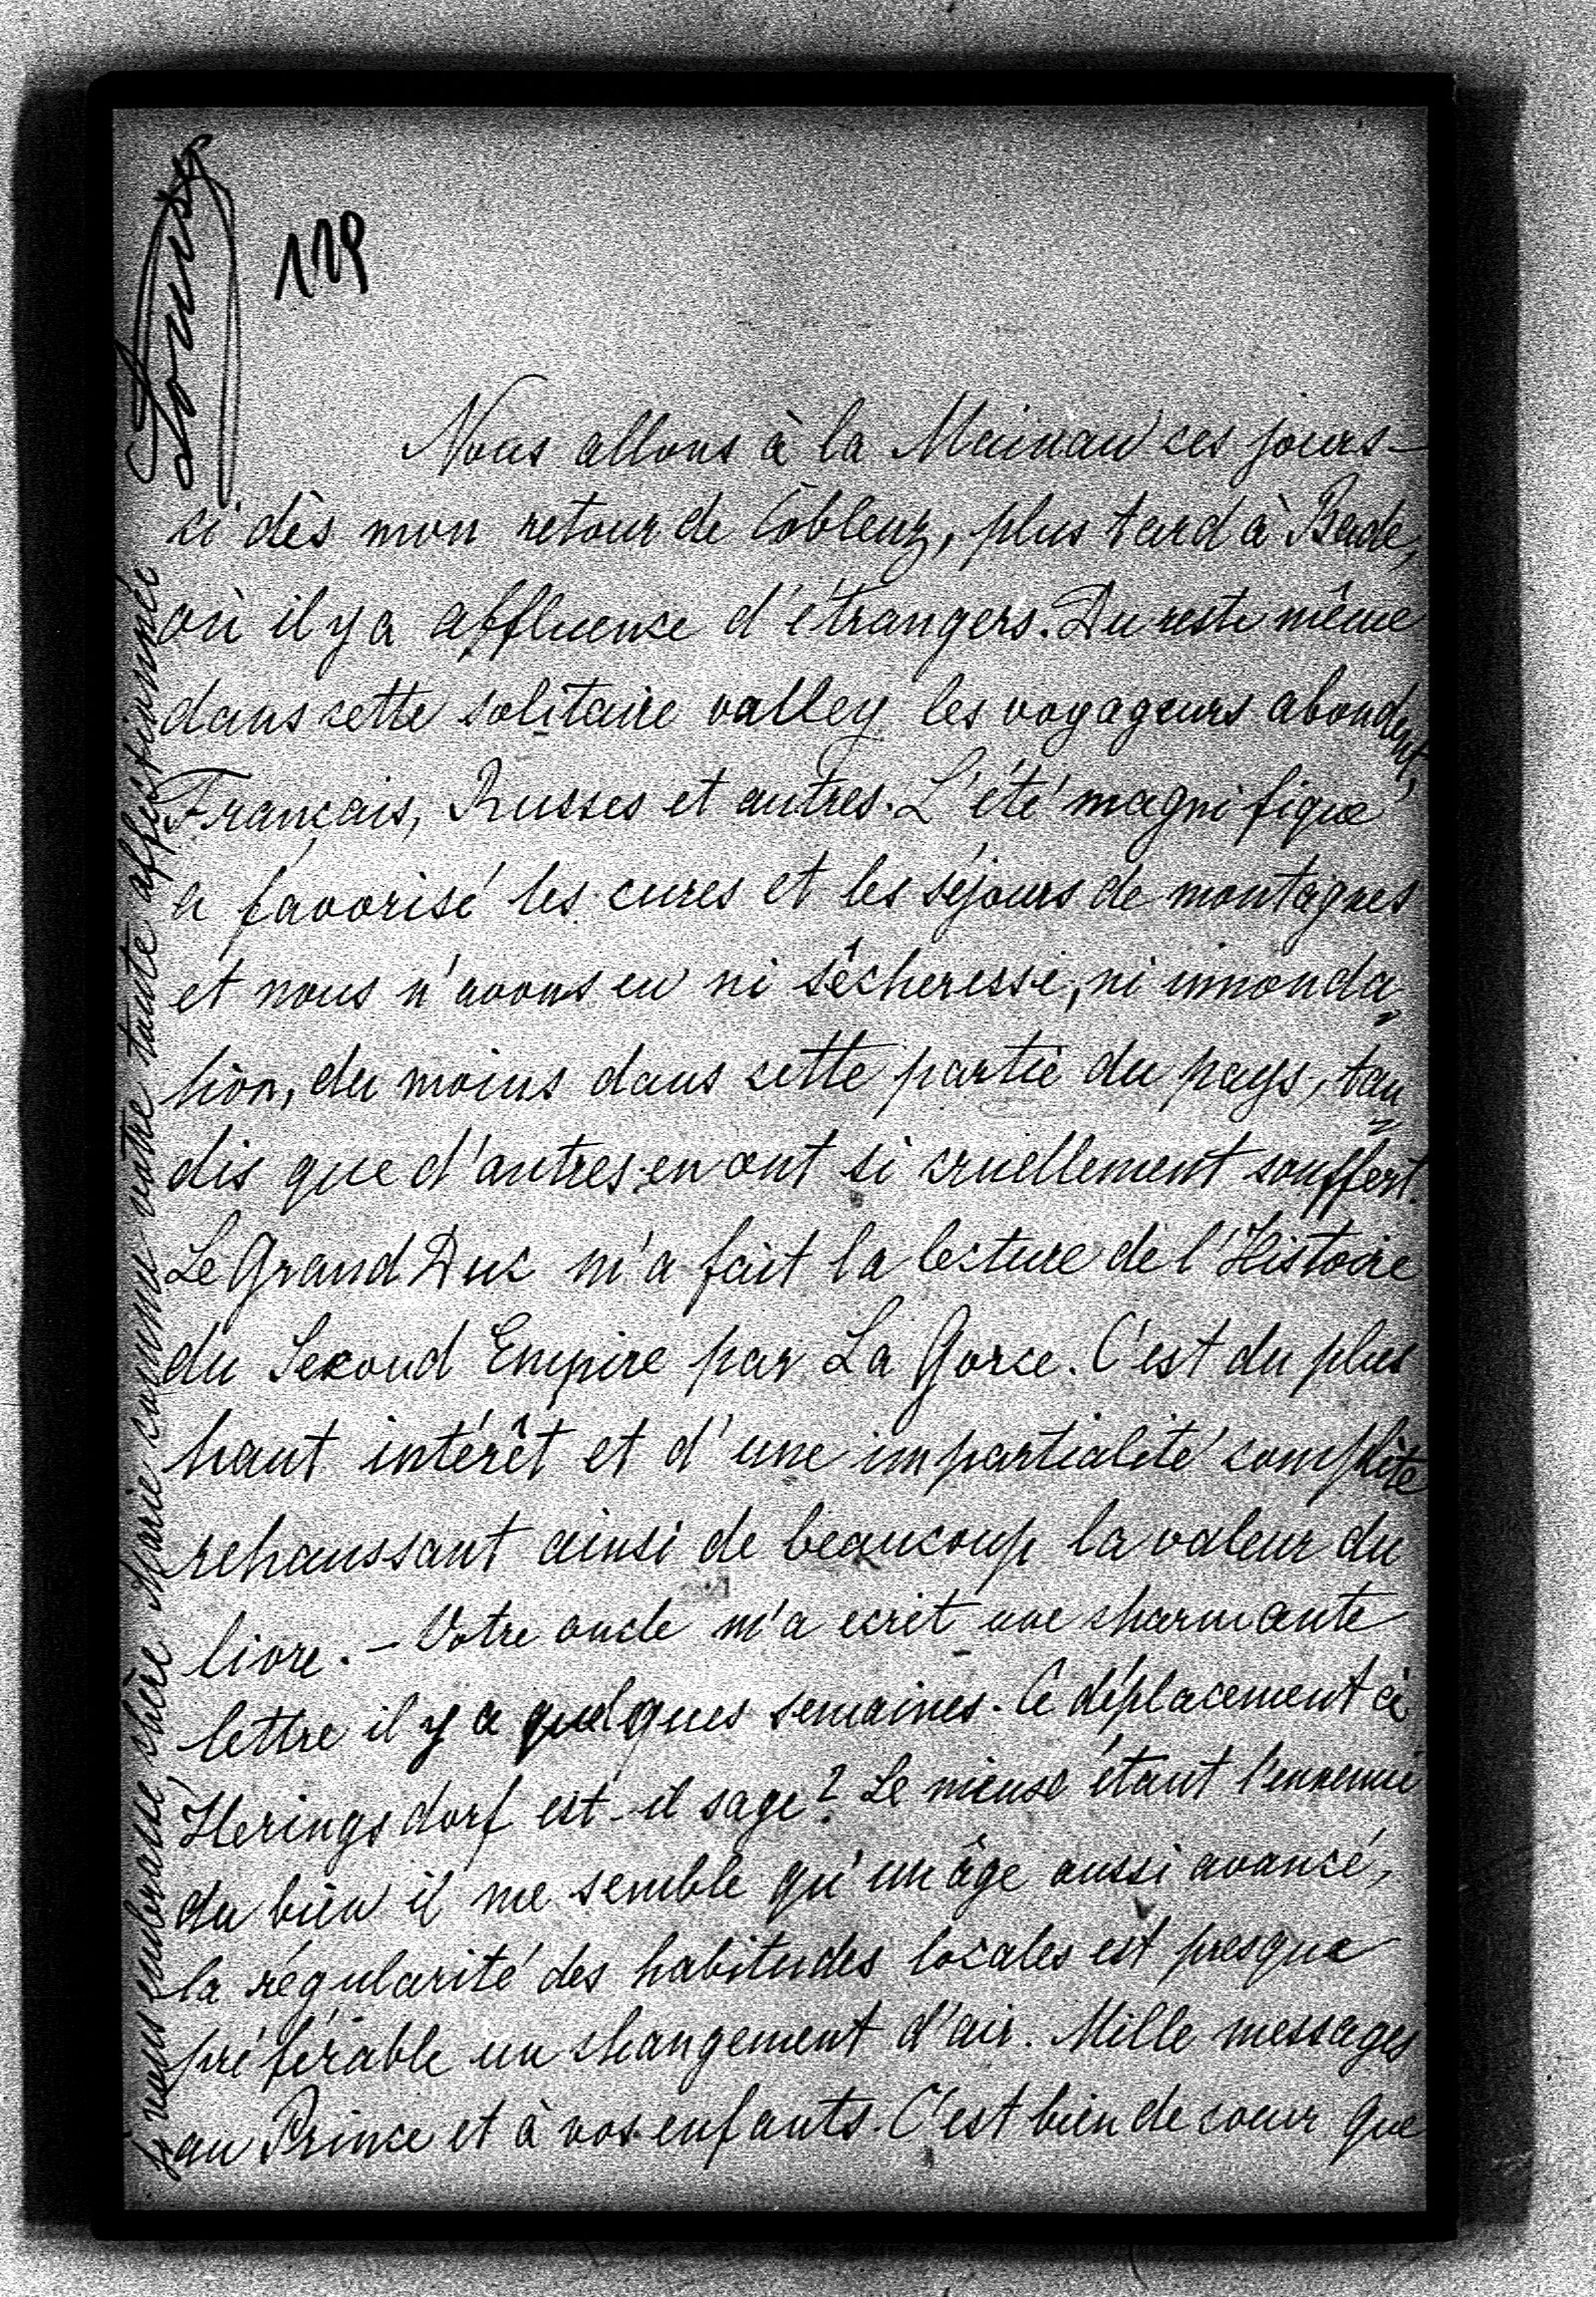 119
Nous allons à la Mainau ces jours-
ci dès mon retour de Coblenz, plus tard à Bade,
où il y a affluence d'étrangers. Du reste même
dans cette solitaire valley les voyageurs abondent,
Français, Russes et autres. L'été magnifique
a favorisé les cures et les séjours de montagnes
et nous n'avons eu ni sêcheresse, ni innonda=
tion, du moins dans cette partie du pays, tan=
dis que d'autres en ont si cruellement souffert.
Le Grand Duc m'a fait la lecture de l'Histoire
du Second Empire par La Gorce. C'est du plus
haut intérêt et d'une impartialité complète
rehaussant ainsi de beaucoup la valeur du
livre. – Votre oncle m'a ecrit une charmante
lettre il y a quelques semaines. Ce déplacement à
Heringsdorf est-il sage? Le mieux étant l'ennemi
du bien il me semble qu'un âge aussi avancé,
la régularité des habitudes locales est presque
préférable un changement d'air. Mille messages
au Prince et à vos enfants. C'est bien de coeur que
je vous embrasse, chère Marie comme votre tante affectionnée
Louise